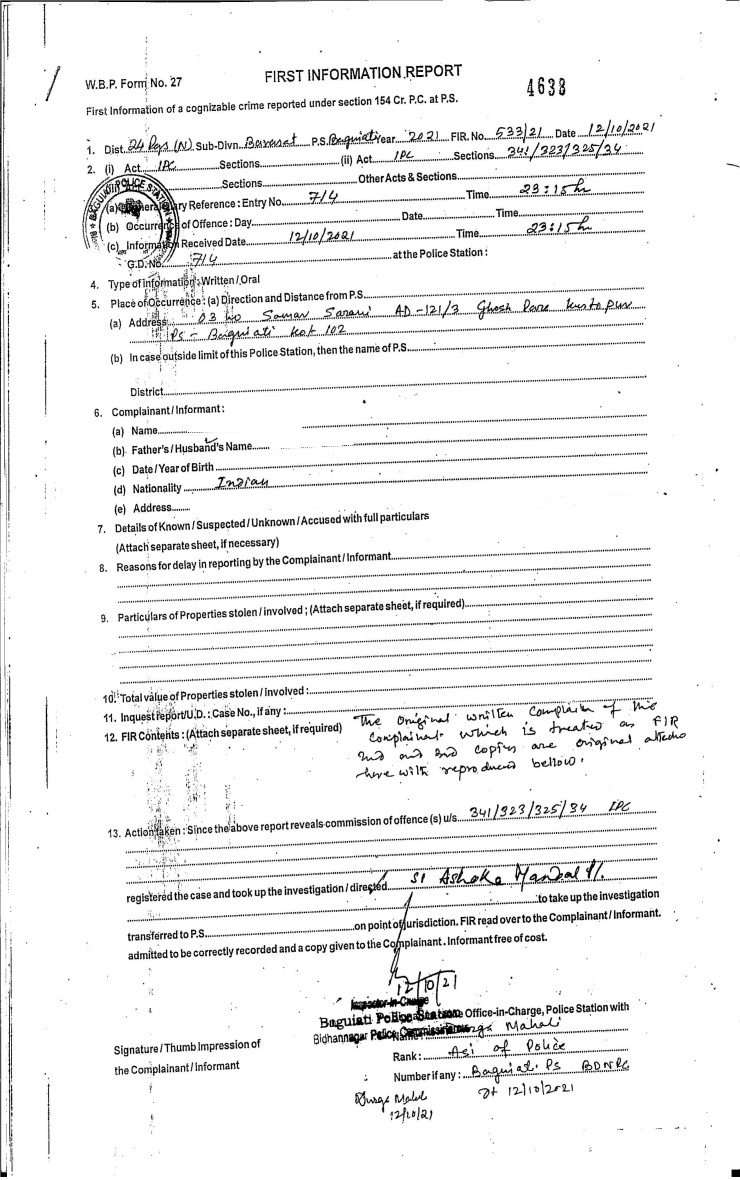 W.B.P. Form No. 27
FIRST INFORMATION REPORT
4638
First Information of a cognizable crime reported under section 154 Cr. P.C. at P.S.
1. Dist. 24 Pgs (N) Sub-Divn. Barasat P.S. Baguiati Year 2021 FIR. No. 533/21 Date 12/10/2021
2. (i) Act IPC Sections (ii) Act IPC Sections 341/323/325/34
Sections Other Acts & Sections
BAGUIATI POLICE STATION
(a) General Diary Reference : Entry No. 714 Time 23:15 hr
(b) Occurrence of Offence : Day Date Time
(c) Information Received Date 12/10/2021 Time 23:15 hr
G.D. No. 714 at the Police Station :
4. Type of Information : Written / Oral
5. Place of Occurrence : (a) Direction and Distance from P.S.
(a) Address Samar Sarani AD-121/3 Ghosh Para Kestopur
PS - Baguiati Kol 102
(b) In case outside limit of this Police Station, then the name of P.S.
District
6. Complainant / Informant :
(a) Name
(b) Father's / Husband's Name
(c) Date / Year of Birth
(d) Nationality Indian
(e) Address
7. Details of Known / Suspected / Unknown / Accused with full particulars
(Attach separate sheet, if necessary)
8. Reasons for delay in reporting by the Complainant / Informant
9. Particulars of Properties stolen / involved ; (Attach separate sheet, if required)
10. Total value of Properties stolen / involved :
11. Inquest report/U.D. : Case No., if any :
12. FIR Contents : (Attach separate sheet, if required)
The original written complain of the
complainat which is treated as FIR
2nd and 3rd copies are original attache
here with reproduced bellow.
13. Action taken : Since the above report reveals commission of offence (s) u/s. 341/323/325/34 IPC
registered the case and took up the investigation / directed SI Ashoke Mandal
to take up the investigation
transferred to P.S. on point of jurisdiction. FIR read over to the Complainant / Informant.
admitted to be correctly recorded and a copy given to the Complainant. Informant free of cost.
12/10/21
Inspector-in-Charge
Baguiati Police Station
Office-in-Charge, Police Station with
Bidhannagar Police Commissionerate
Name : Durga Mahali
Signature / Thumb Impression of
the Complainant / Informant
Rank : Asi of Police
Number if any : Baguiati PS BDNPC
Dt 12/10/2021
Durga Mahali
12/10/21